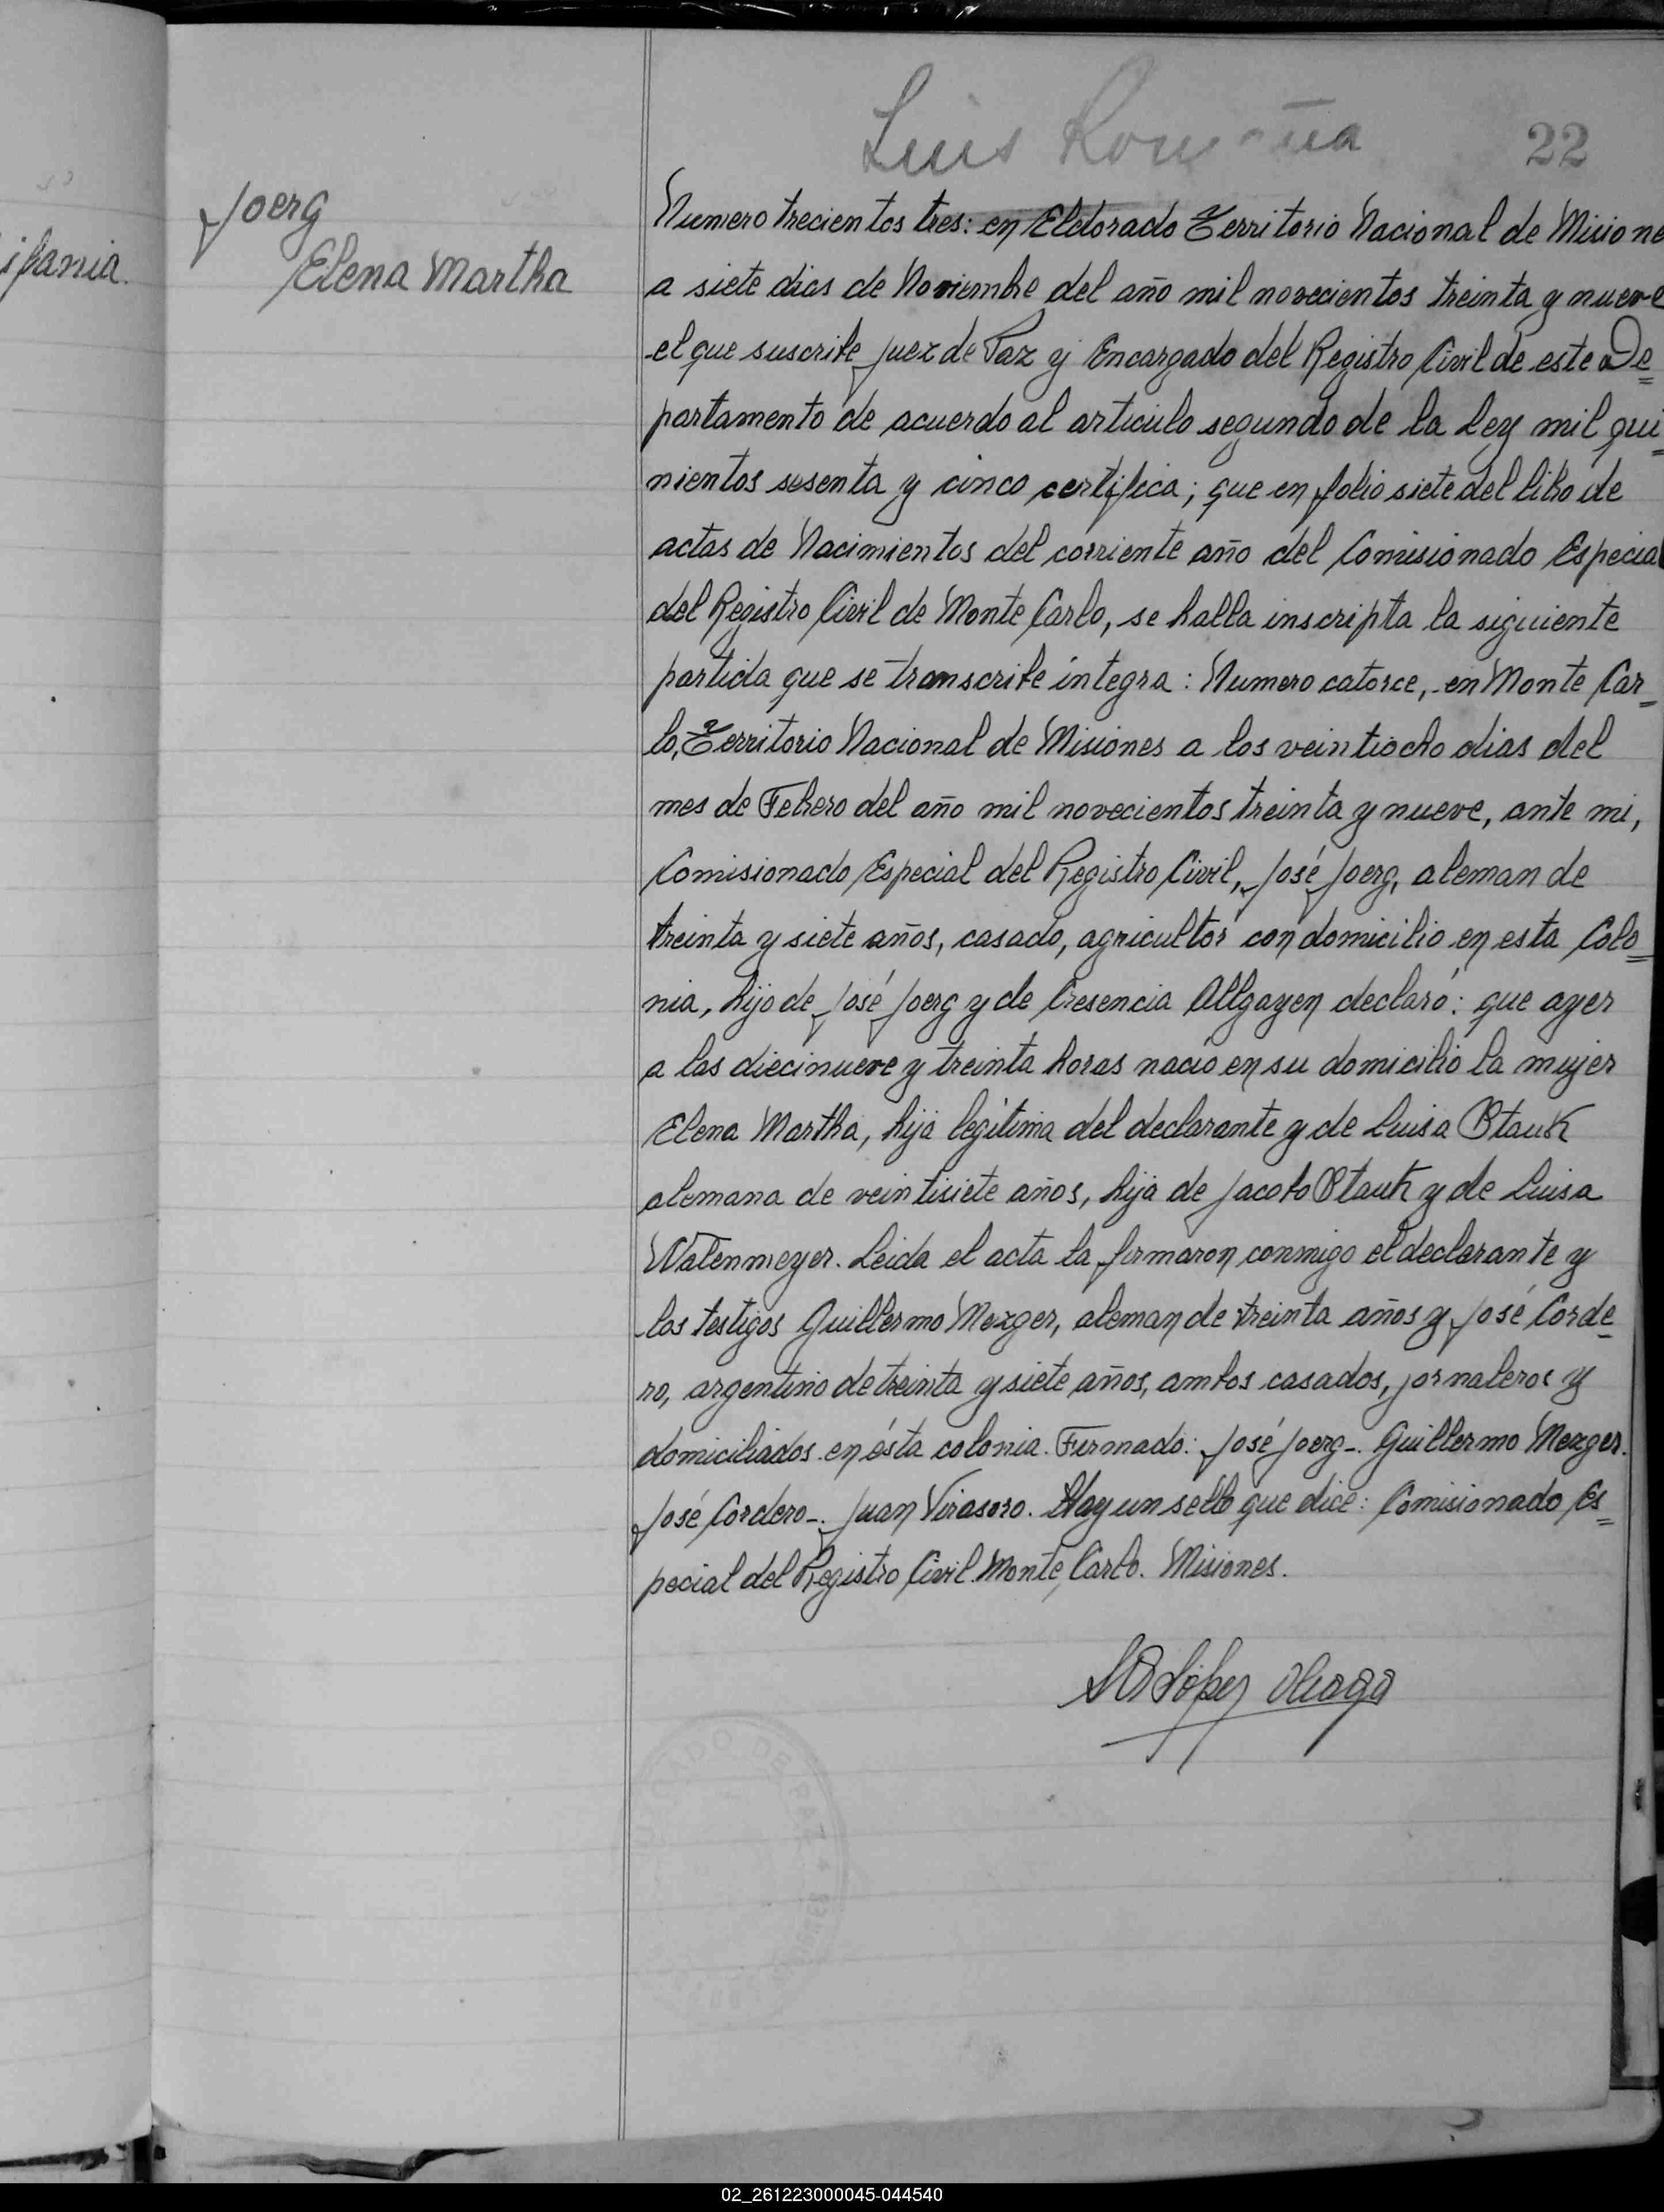 Luis
22
ifania.
Joerg
Elena Martha
Numero trecientos tres: en Eldorado Territorio Nacional de Misione
a siete dias de Noviembre del año mil novecientos treinta y nueve
el que suscribe Juez de Paz y Encargado del Registro Civil de este De=
partamento de acuerdo al articulo segundo de la Ley mil qui=
nientos sesenta y cinco certifica; que en folio siete del libro de
actas de Nacimientos del corriente año del Comisionado Especial
del Registro Civil de Monte Carlo, se halla inscripta la siguiente
partida que se transcribe integra: Numero catorce, en Monte Car=
lo, Territorio Nacional de Misiones a los veintiocho dias del
mes de Febrero del año mil novecientos treinta y nueve, ante mi,
Comisionado Especial del Registro Civil, José Joerg, aleman de
treinta y siete años, casado, agricultor con domicilio en esta Colo=
nia, hijo de José Joerg y de Cresencia Allgayen declaró: que ayer
a las diecinueve y treinta horas nació en su domicilio la mujer
Elena Martha, hija legítima del declarante y de Luisa Ptauk
alemana de veintisiete años, hija de Jacobo Ptauk y de Luisa
Walenmeyer. Leida el acta la firmaron conmigo el declarante y
los testigos Guillermo Mezger, aleman de treinta años y José Corde=
ro, argentino de treinta y siete años, ambos casados, jornaleros y
domiciliados en ésta colonia. Firmado: José Joerg-. Guillermo Mezger.
José Cordero-. Juan Virasoro. Hay un sello que dice: Comisionado Es=
pecial del Registro Civil. Monte Carlo. Misiones.
López
DE PAZ
02_261223000045-044540